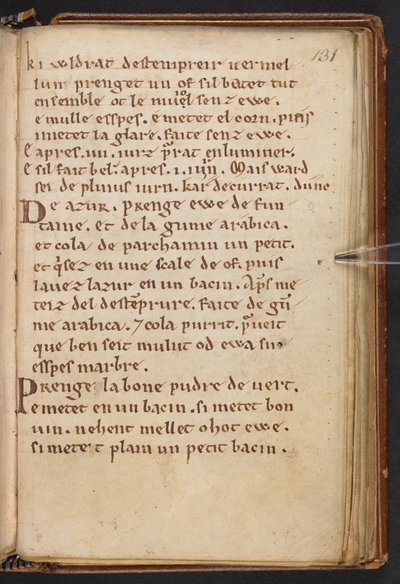 131
Ki voldrat destempreir uermel
lun prenget un of sil batet tut
ensemble ot le muol senz ewe.
e mulle esspes. e metet el corn. puis
imetet la glare. faite senz ewe.
E apres .iii. iurz prat enluminer.
E sil fait bel. apres .i. Mais ward
sei de pluius iurn. kar decurrat. dunc
De azur. Prenge ewe de fun
taine. et de la gume arabica.
et cola de parchamin un petit.
et en une scale de of. puis
lauez lazur en un bacin. Aps me
teiz del destēprure. faite de gū
me arabica. 7 cola purrit.
que ben seit mulut od ewa sus
esspes marbre.
Prenge la bone pudre de uert.
e metet en un bacin. si metet bon
uin. uehent mellet o hot ewe.
si metet plain un petit bacin.